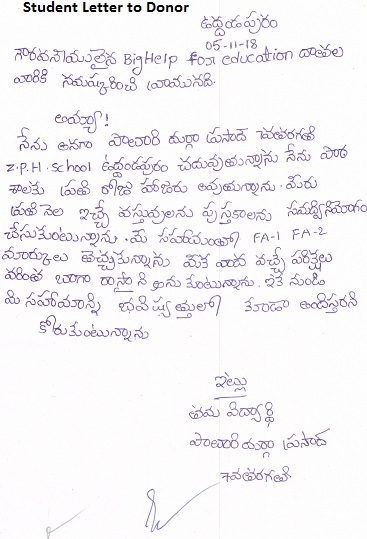 Student Letter to Donor
ఉద్దండపురం
05-11-18
గౌరవనీయులైన BigHelp for education దాతల
వారికి నమష్కరించి వ్రాయునది.
అయ్యా!
నేను అనగా పాలవారి దుర్గా ప్రసాద్ 7వతరగతి
Z.P.H. School ఉద్దండపురం చదువుతున్నాను నేను పాఠ
శాలకు ప్రతి రోజు హాజరు అవుతున్నాను. మీరు
ప్రతి నెల ఇచ్చే వస్తువులను పుస్తకాలను సద్వినియోగం
చేసుకుంటున్నాను. మీ సహాయంతో FA-1 FA-2
మార్కులు తెచ్చుకున్నాను వచ్చే పరిక్షలు
మరింత బాగా రాస్తా ను కుంటున్నాను. ఇక నుండి
మి సహాయాన్ని భవిష్యత్తులో కూడా అందిస్తారని
కోరుకుంటున్నాను
ఇట్లు
తమ విద్యార్థి
దుర్గా ప్రసాద్
7వతరగతి